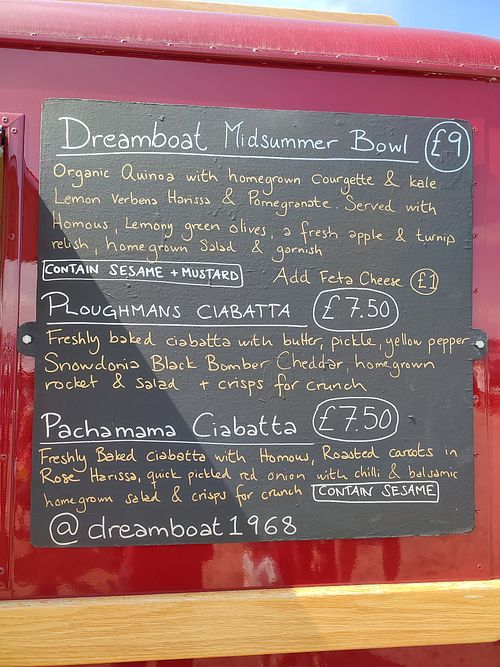 Dreamboat Midsummer Bowl £9
Organic Quinoa with homegrown Courgette & kale
Lemon Verbena Harissa & Pomegranate. Served with
Homous, Lemony green olives, a fresh apple & turnip
relish, homegrown Salad & garnish
CONTAIN SESAME + MUSTARD Add Feta Cheese £1
PLOUGHMANS CIABATTA £7.50
Freshly baked ciabatta with butter, pickle, yellow pepper
Snowdonia Black Bomber Cheddar, homegrown
rocket & salad + crisps for crunch
Pachamama Ciabatta £7.50
Freshly Baked ciabatta with Homous, Roasted carrots in
Rose Harissa, quick pickled red onion with chilli & balsamic
homegrown salad & crisps for crunch CONTAIN SESAME
@dreamboat1968